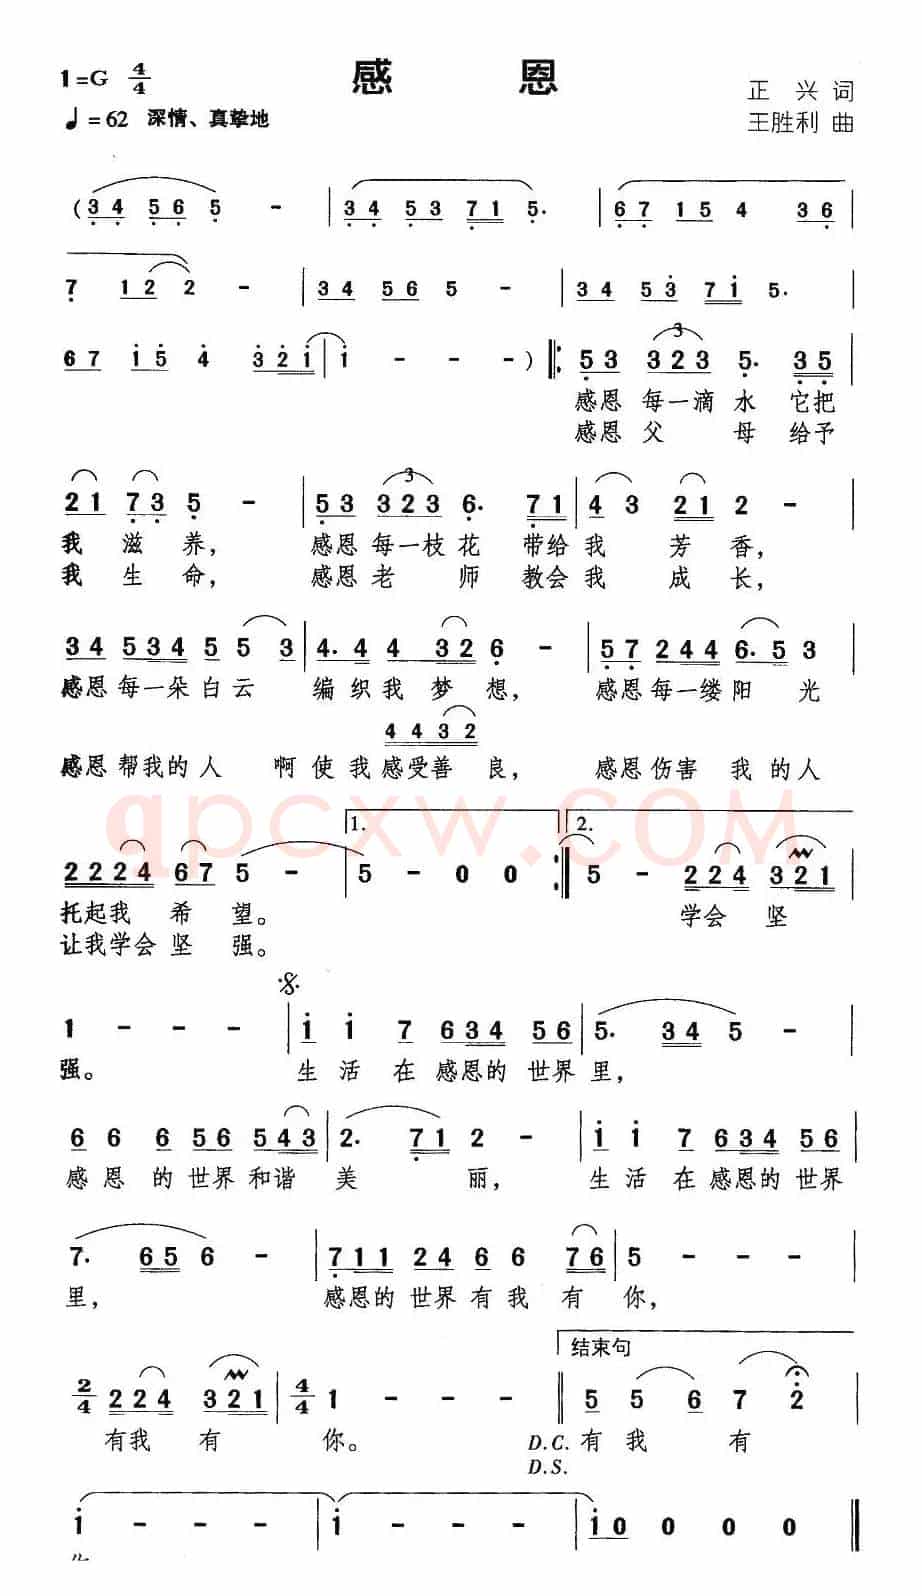 感 恩
1=G 4/4
正 兴 词
♩= 62 深情、真挚地
王胜利 曲
(3 4 5 6 5 - | 3 4 5 3 7 1 5. | 6 7 1 5 4 3 6 |
7 1 2 2 - | 3 4 5 6 5 - | 3 4 5 3 7 1 5. |
6 7 1 5 4 3 2 1 | 1 - - - ) ‖: 5 3 3 2 3 5. 3 5
感恩 每一滴 水 它把
感恩 父 母 给予
2 1 7 3 5 - | 5 3 3 2 3 6. 7 1 | 4 3 2 1 2 - |
我 滋 养, 感恩 每一枝 花 带给 我 芳 香,
我 生 命, 感恩 老 师 教会 我 成 长,
3 4 5 3 4 5 5 3 | 4. 4 4 3 2 6 - | 5 7 2 4 4 6. 5 3 |
感恩 每一朵 白 云 编 织 我 梦 想, 感恩 每一缕 阳 光
4 4 3 2
感恩 帮我的 人 啊 使 我 感受善 良, 感恩 伤害 我 的 人
1. 2.
2 2 2 4 6 7 5 - | 5 - 0 0 :‖ 5 - 2 2 4 3 2 1 |
托起我 希 望。 学会 坚
让我学会 坚 强。
1 - - - | 1 1 7 6 3 4 5 6 | 5. 3 4 5 - |
强。 生 活 在 感恩的 世界 里,
6 6 6 5 6 5 4 3 | 2. 7 1 2 - | 1 1 7 6 3 4 5 6 |
感 恩 的 世界 和谐 美 丽, 生 活 在 感恩的 世界
7. 6 5 6 - | 7 1 1 2 4 6 6 7 6 | 5 - - - |
里, 感恩的 世界 有 我 有 你,
结束句
2/4 2 2 4 3 2 1 | 4/4 1 - - - ‖ 5 5 6 7 2
有我 有 你。 D.C. 有 我 有
D.S.
1 - - - | 1 - - - | 1 0 0 0 0 ‖
qpcxw.COM